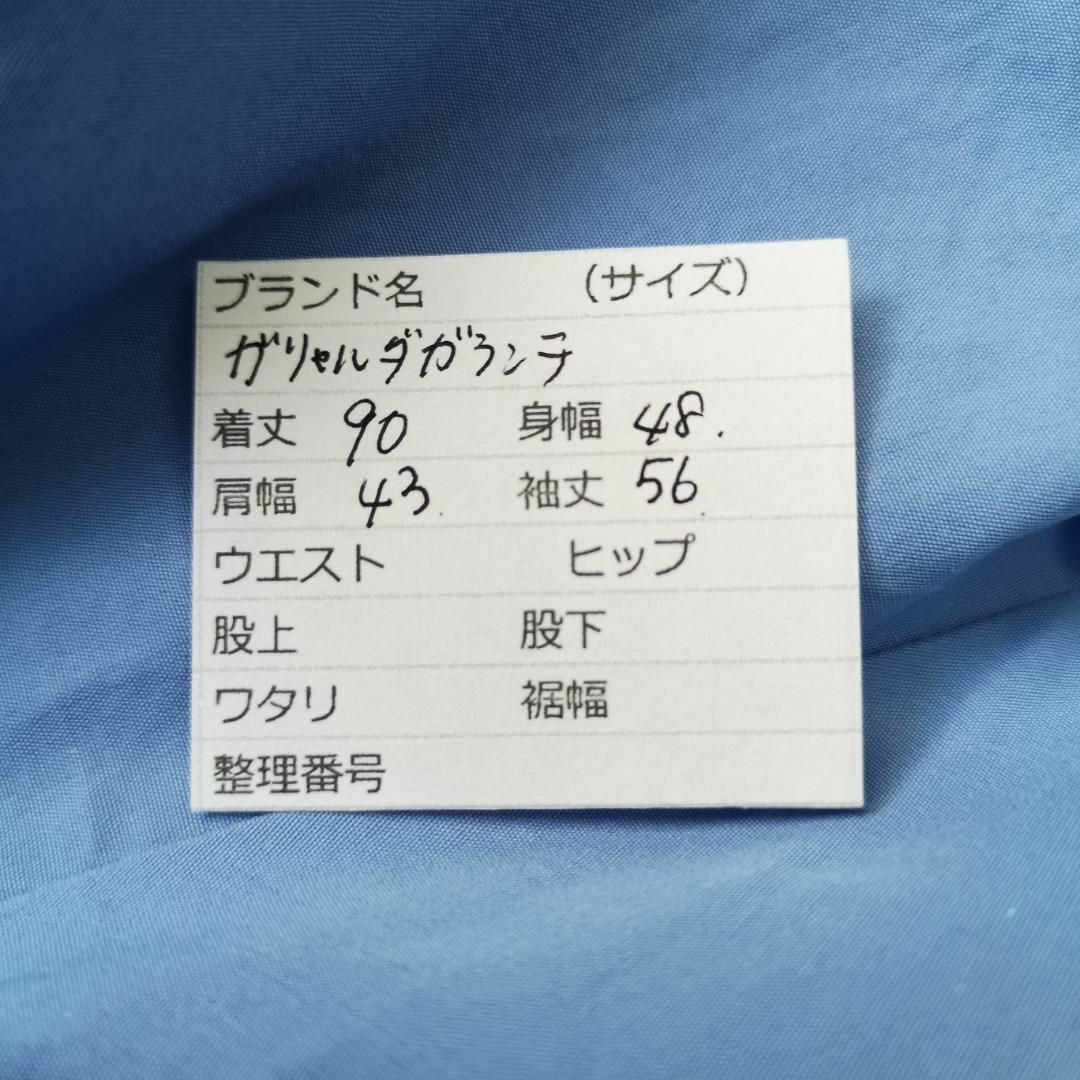 ブランド名 (サイズ)
ガリャルダガランテ
着丈 90 身幅 48.
肩幅 43. 袖丈 56
ウエスト ヒップ
股上 股下
ワタリ 裾幅
整理番号